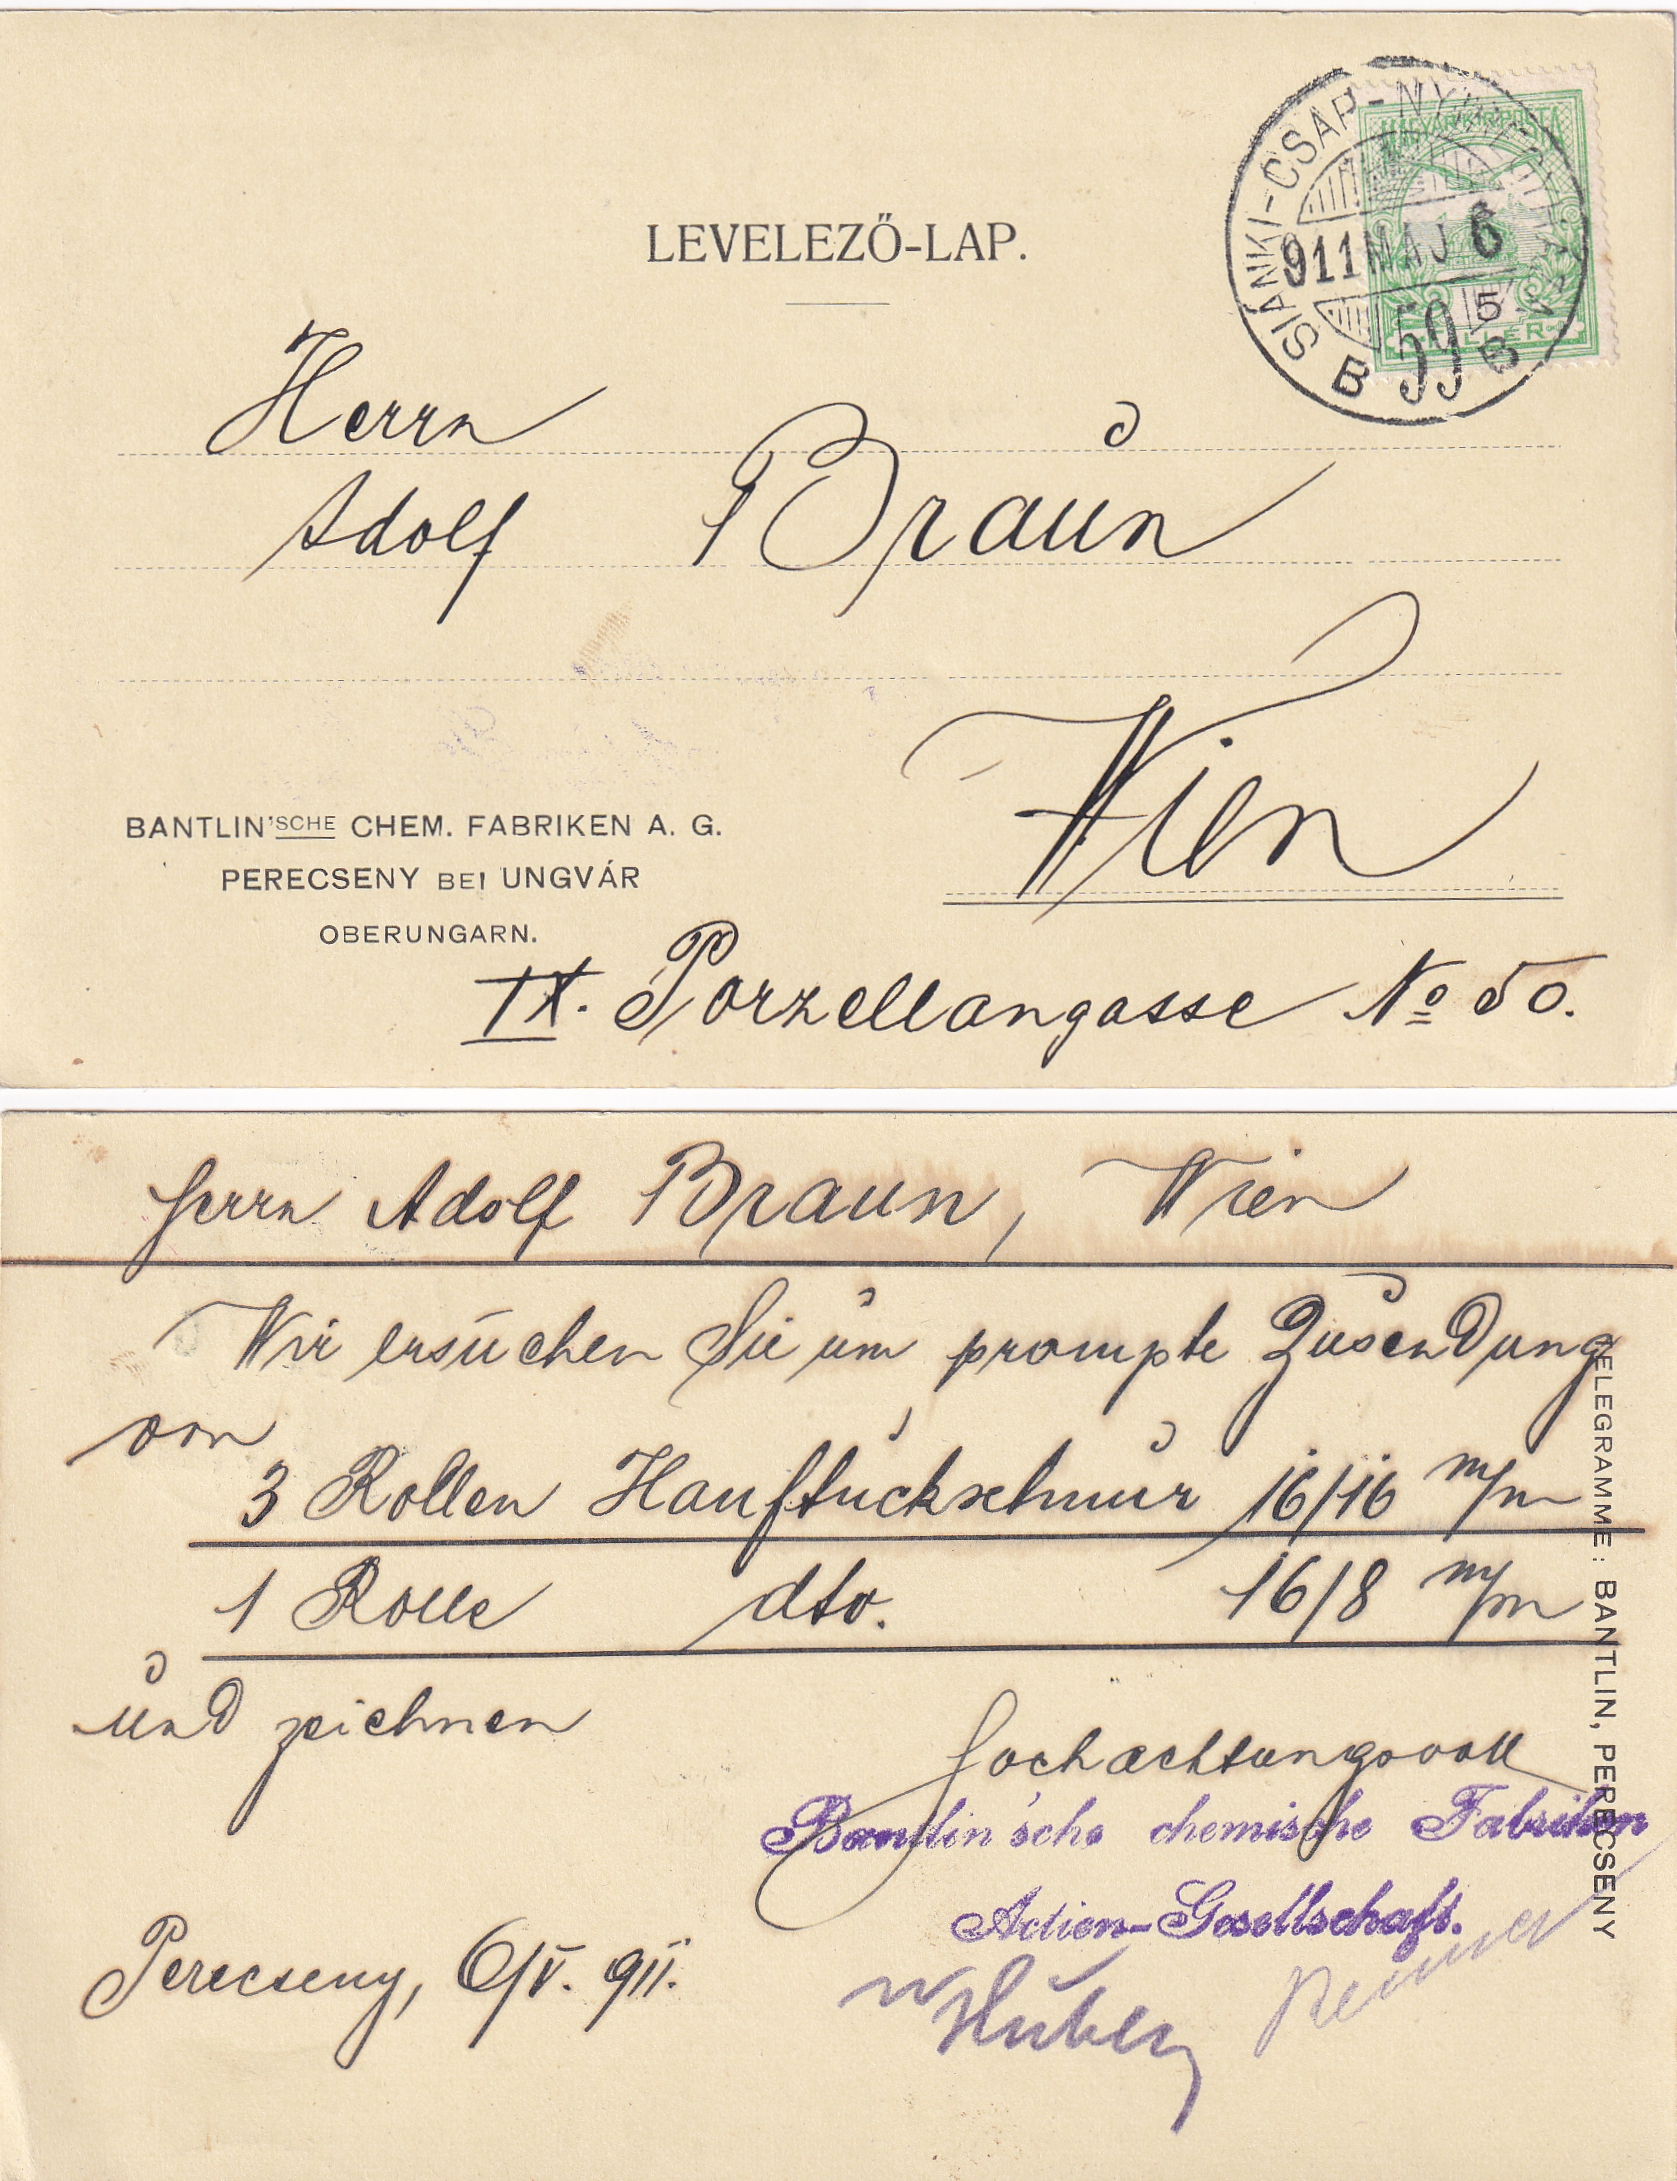 LEVELEZŐ-LAP.
SIANKI-CSAP-NYIREGYHÁZA
911 MAJ 6
59
B B
MAGYAR KIR. POSTA
5
FILLÉR
Herrn
Adolf Braun
Wien
BANTLIN'SCHE CHEM. FABRIKEN A. G.
PERECSENY BEI UNGVÁR
OBERUNGARN.
IX. Porzellangasse No 50.
Herrn Adolf Braun, Wien
Wir ersuchen Sie um prompte Zusendung
von
3 Rollen Hanfstuckschnur 16/16 m/m
1 Rolle dto. 16/8 m/m
und zeichnen
Hochachtungsvoll
Bantlin'sche chemische Fabriken
Actien-Gesellschaft.
Perecseny, 6/V. 911.
TELEGRAMME: BANTLIN, PERECSENY